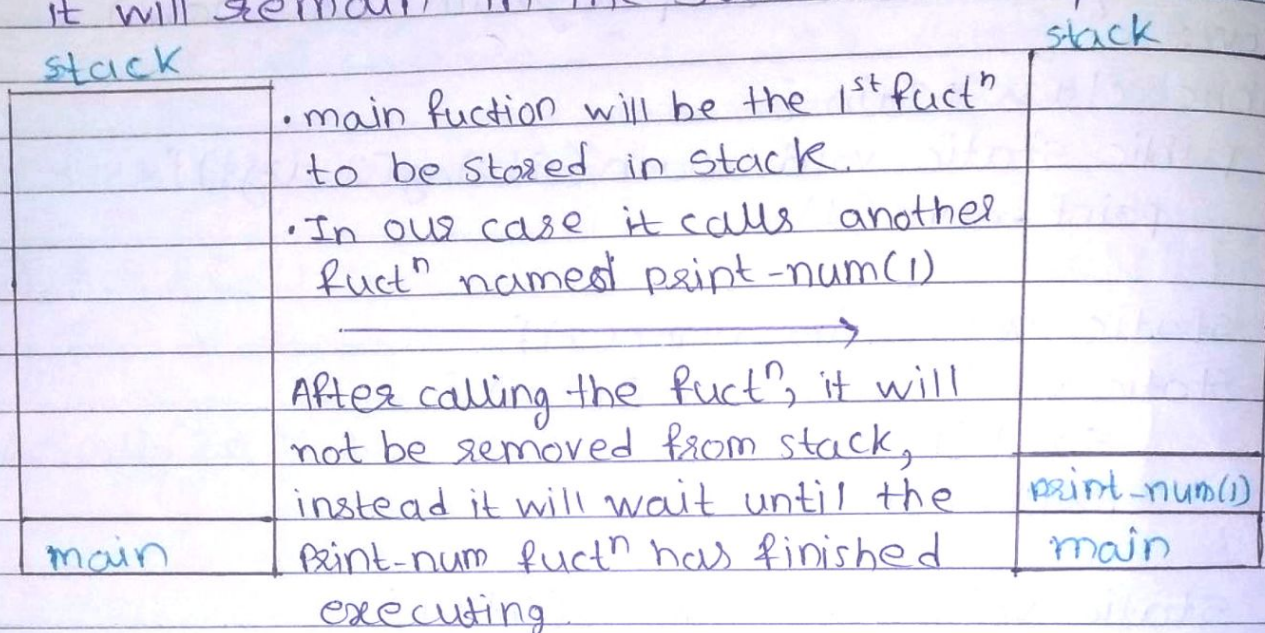 it will remain in the
stack
stack
• main fuction will be the 1st fuctⁿ
to be stored in stack.
• In our case it calls another
fuctⁿ named print-num(1)
After calling the fuctⁿ, it will
not be removed from stack,
instead it will wait until the
print-num fuctⁿ has finished
executing
main
print-num(1)
main